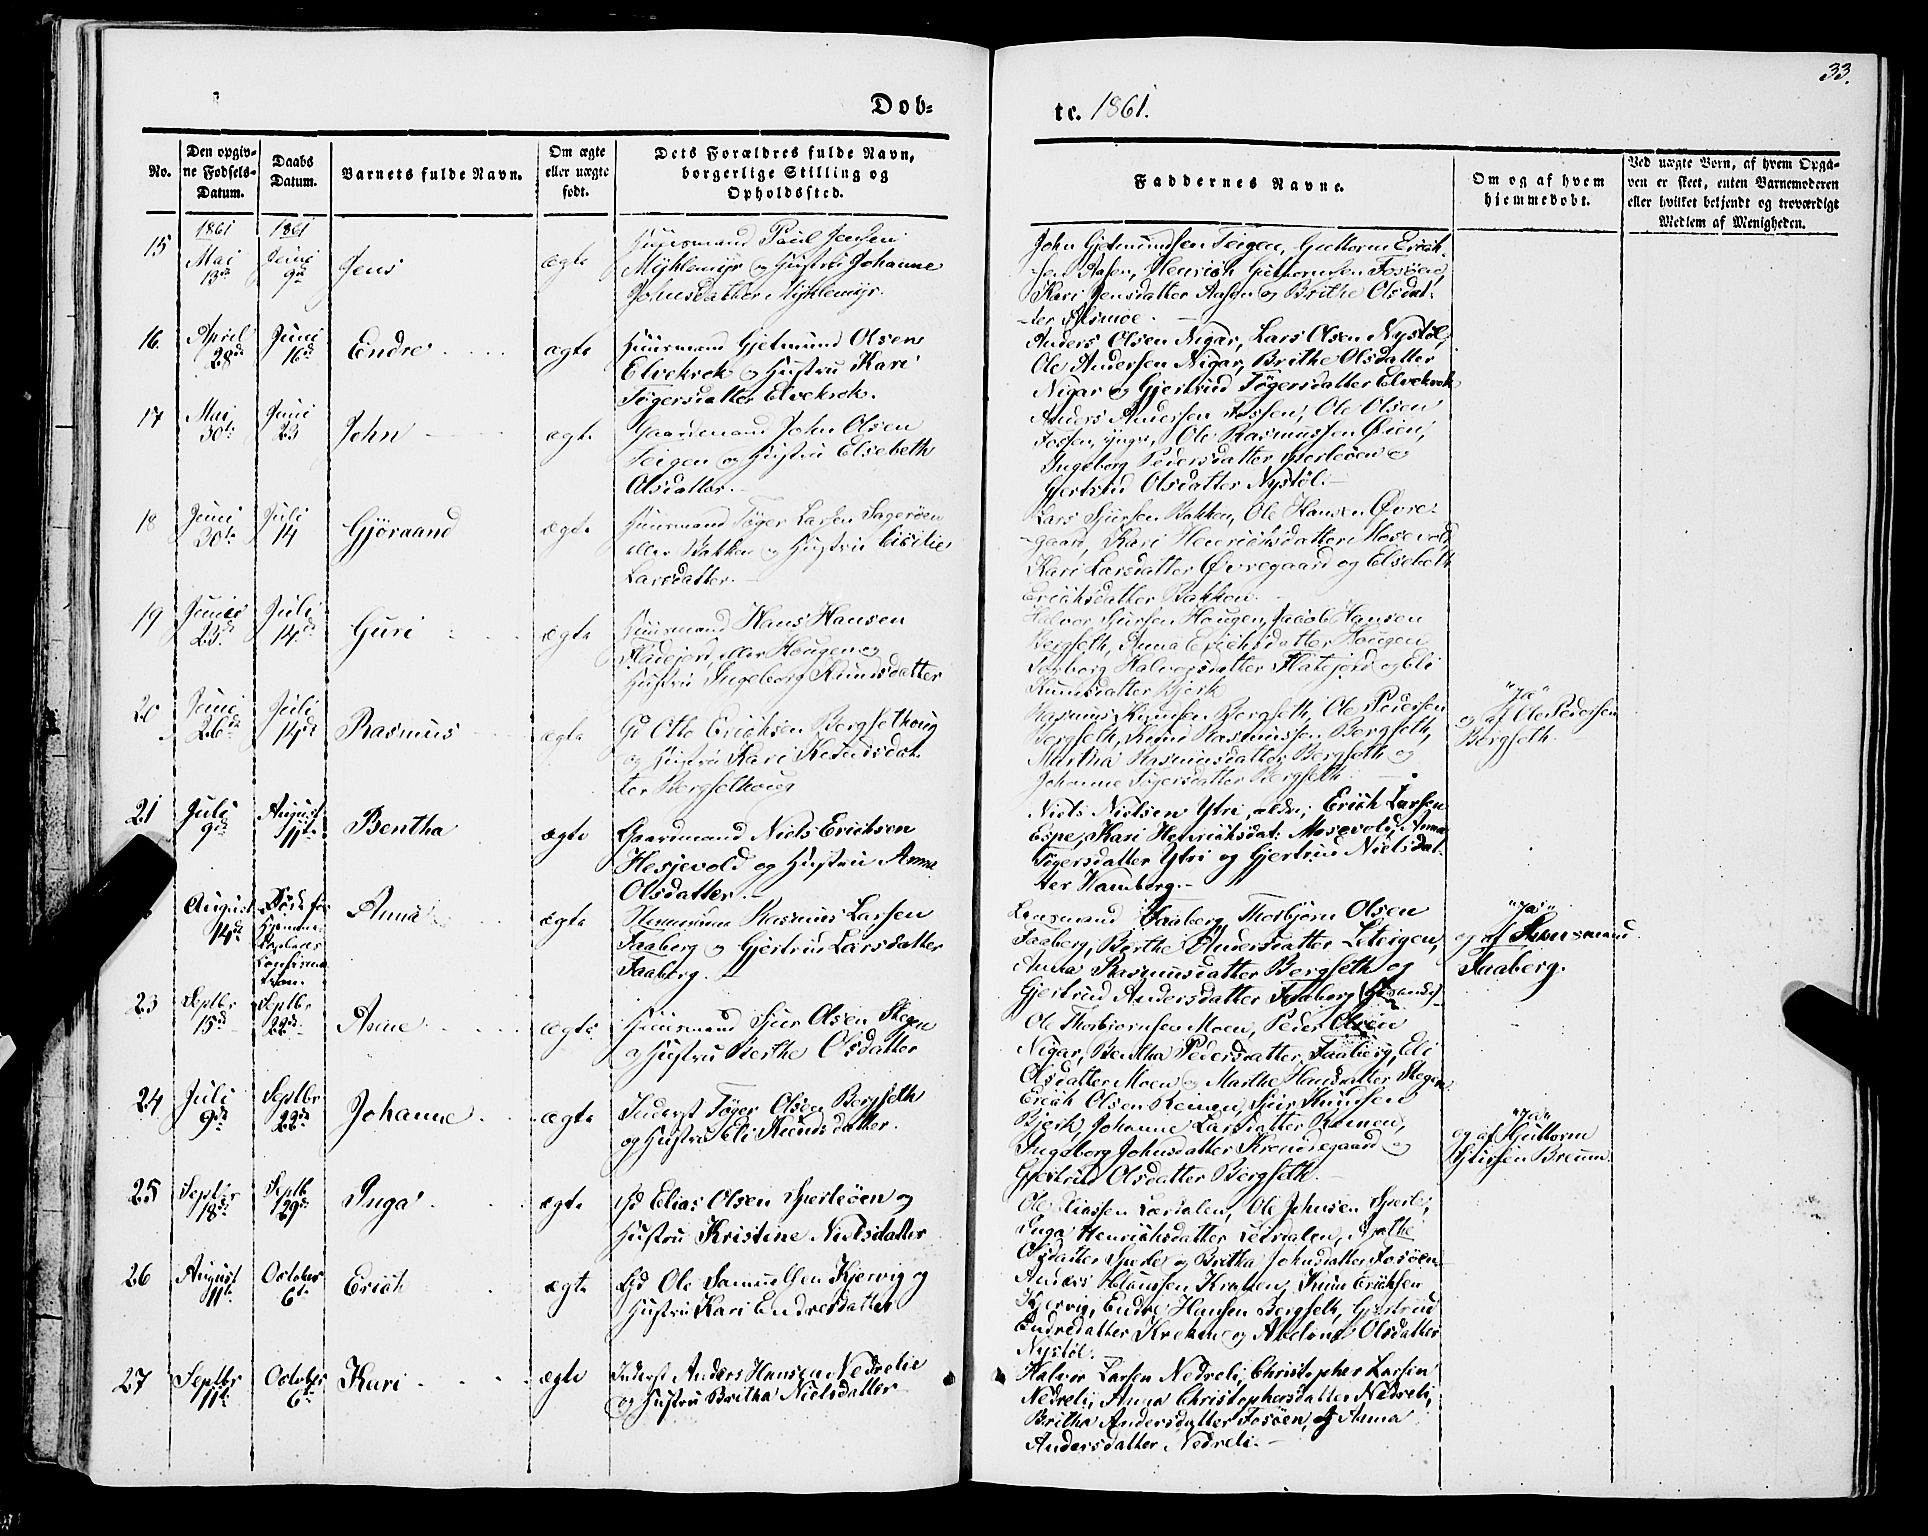 33.
Dob=
te. 1861.
No.
Den opgiv-
ne Fodsels-
Datum.
Daabs
Datum.
Barnets fulde Navn.
Om ægte
eller uægte
født.
Dets Forældres fulde Navn,
borgerlige Stilling og
Opholdssted.
Faddernes Navne.
Om og af hvem
hjemmedobt.
Ved uægte Born, af hvem Opga-
ven er skeet, enten Barnemoderen
eller hvilket bekjendt og troværdigt
Medlem af Menigheden.
1861
1861
15
Mai
13de
Juni
9de
Jens
ægte
Huusmand Paul Jensen
Myklemyr og Hustru Johanne
Johnsdatter Myklemyr.
John Gjetmundsen Teigen, Guttorm Erich-
sen Aasen, Henrich Guttormsen Fosøen,
Kari Jensdatter Aasen og Brithe Olsdat-
ter
16.
April
28de
Juni
16de
Endre
ægte
Huusmand Gjetmund Olsen
Elvekrok og Hustru Kari
Tøgersdatter Elvekrok.
Anders Olsen Nigar, Lars Olsen Nystøl,
Ole Andersen Nigar, Brithe Olsdatter
Nigar og Gjertrud Tøgersdatter Elvekrok
17
Mai
30te
Juni
23
John
ægte
Gaardmand John Olsen
Teigen og Hustru Elsebeth
Olsdatter.
Anders Andersen Fossen, Ole Olsen
Fossen, yngre, Ole Rasmussen Øien,
Ingeborg Pedersdatter Sperleøen og
Gjertrud Olsdatter Nystøl.
18
Juni
30te
Juli
14
Gjøraand
ægte
Huusmand Tøger Larsen Sagerøen
eller Bakken og Hustru Cicilie
Larsdatter.
Lars Sjursen Bakken, Ole Hansen Øvre-
gaard, Kari Henrichsdatter Mosevold
Kari Larsdatter Øvregaard og Elsebeth
Erichsdatter Bakken.
19
Juni
23de
Juli
14de
Guri
ægte
Huusmand Hans Hansen
Flatejord, eller Hougen og
Hustru Ingeborg Knudsdatter
Halvor Sjursen Hougen, Jacob Hansen
Bergseth, Anna Erichsdatter Hougen
Ingborg Halvorsdatter Flatejord og Eli
Knudsdatter Bjørk
20
Juni
26de
Juli
14de
Rasmus
ægte
Gd Otte Erichsen Bergsethoug
og Hustru Kari Knudsdat-
ter Bergsethoug
Rasmus Knudsen Bergseth, Ole Pedersen
Bergseth, Knud Rasmussen Bergseth,
Martha Rasmusdatter Bergseth og
Johanne Tøgersdatter Bergseth
"Ja"
og af Ole Pedersen
Bergseth.
21
Juli
9de
August
11te
Bentha
ægte
Gaardmand Niels Erichsen
Hesjevold og Hustru Anna
Olsdatter.
Niels Nielsen Ytri, ældre, Erich Larsen
Espe, Kari Henrichsdat: Mosevold, Anna
Tøgersdatter Ytri og Gjertrud Nielsdat-
ter Hamberg.
August
14de
Død før
Hjemme-
daabens
Confirma-
tion.
Anna
ægte
Rasmus Larsen
Faaberg og Gjertrud Larsdatter
Faaberg.
Lensmand Faaberg, Thorbjørn Olsen
Faaberg, Berthe Andersdatter Leteigen,
Anna Rasmusdatter Bergseth og
Gjertrud Andersdatter Faaberg
"Ja"
og af Lensmand
Faaberg.
23
Septbr
15de
Septbr
22de
Anne
ægte
Huusmand Sjur Olsen Stegen
og Hustru Berthe Olsdatter
Ole Thorbjørnsen Moen, Peder Olsen
Nigar, Bentha Pedersdatter Faaberg, Eli
Olsdatter Moen og Marthe Hansdatter Stegen
24
Juli
9de
Septbr
22de
Johanne
ægte
Inderst Tøger Olsen Bergseth
og Hustru Eli Knudsdatter.
Erich Olsen Reinen, Sjur Knudsen
Bjørk, Johanne Larsdatter Reinen,
Ingeborg Johnsdatter Kroudregaard og
Gjertrud Olsdatter Bergseth.
"Ja"
og af Guttorm
Breum.
25
Septbr
18de
Septb
29de
Inga
ægte
Gd Elias Olsen Sperleøen og
Hustru Kristine Nielsdatter
Ole Eliassen Leirdalen, Ole Johnsen Sperle,
Inga Henrichsdatter Leirdalen, Agathe
Olsdatter Sperle og Britha Johnsdatter Fosøen
26
August
11te
October
6te
Erich
ægte
Gd Ole Samuelsen Kjervig og
Hustru Kari Endresdatter
Anders Claussen Kroken, Knud Erichsen
Kjervig, Endre Hansen Bergseth, Gjertrud
Endredatter Kroken og Abelone Olsdatter
Nystøl.
27
Septbr
11te
October
6te
Kari
ægte
Inderst Anders Hansen Nedrelie
og Hustru Britha Nielsdatter
Halvor Larsen Nedreli, Christopher Larsen
Nedreli, Anna Christophersdatter Nedreli,
Britha Andersdatter Fosøen, og Anna
Andersdatter Nedreli.